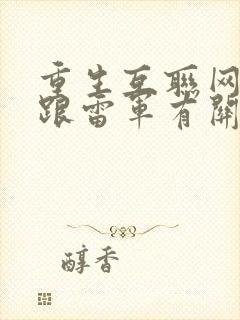 重生互聯网
跟雷軍有關
醇香